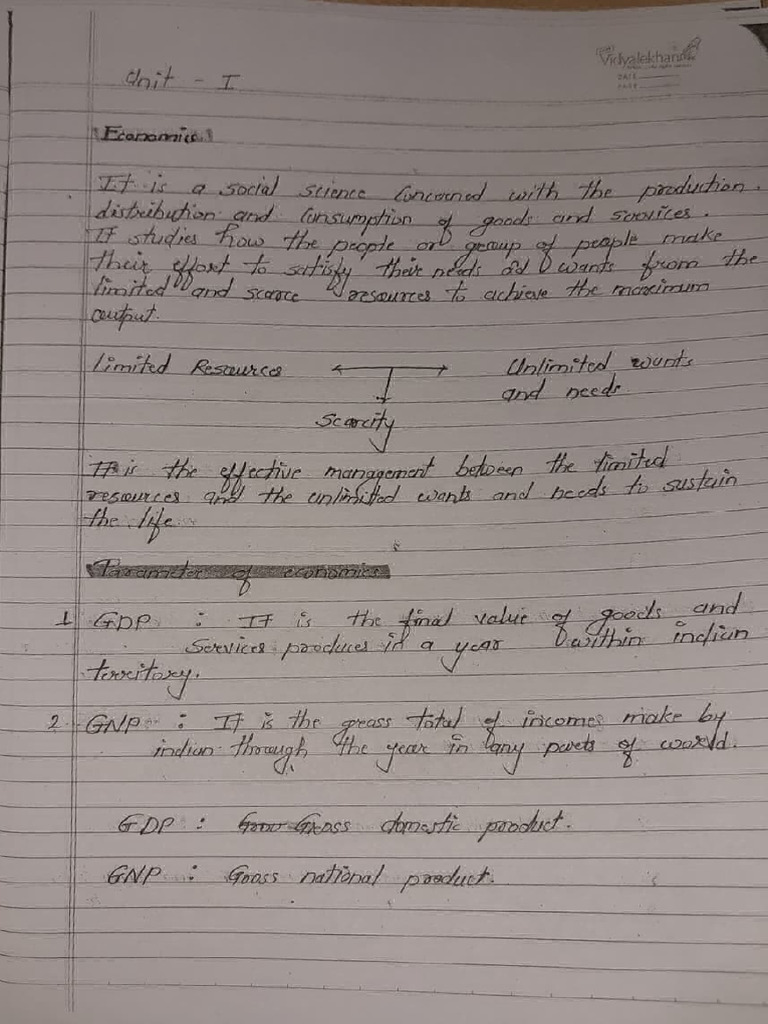 Vidyalekhan
DATE
PAGE
Unit - I
Economics
It is a social science Concerned with the production
distribution and Consumption of goods and services.
It studies how the people or group of people make
their effort to satisfy their needs and wants from the
limited and scarce resources to achieve the maximum
output.
Limited Resources
Unlimited wants
and needs
Scarcity
It is the effective management between the limited
resources and the unlimited wants and needs to sustain
the life
Parameter of economics
1 GDP : It is the final value of goods and
Services produces in a year within indian
territory.
2 GNP : It is the gross total of incomes make by
indian through the year in any parts of world.
GDP : Gross domestic product.
GNP : Gross national product.